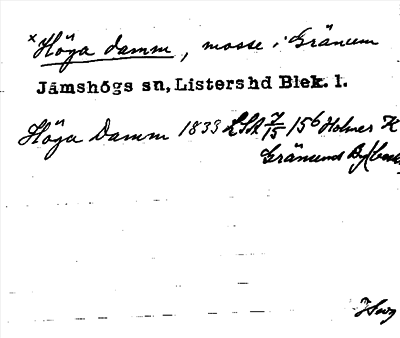 x Höga damm, mosse i Gränum
Jämshögs sn, Listers hd Blek. l.
Höga Damm 1833 LSA J/15 156 Holmer K
Gränums By